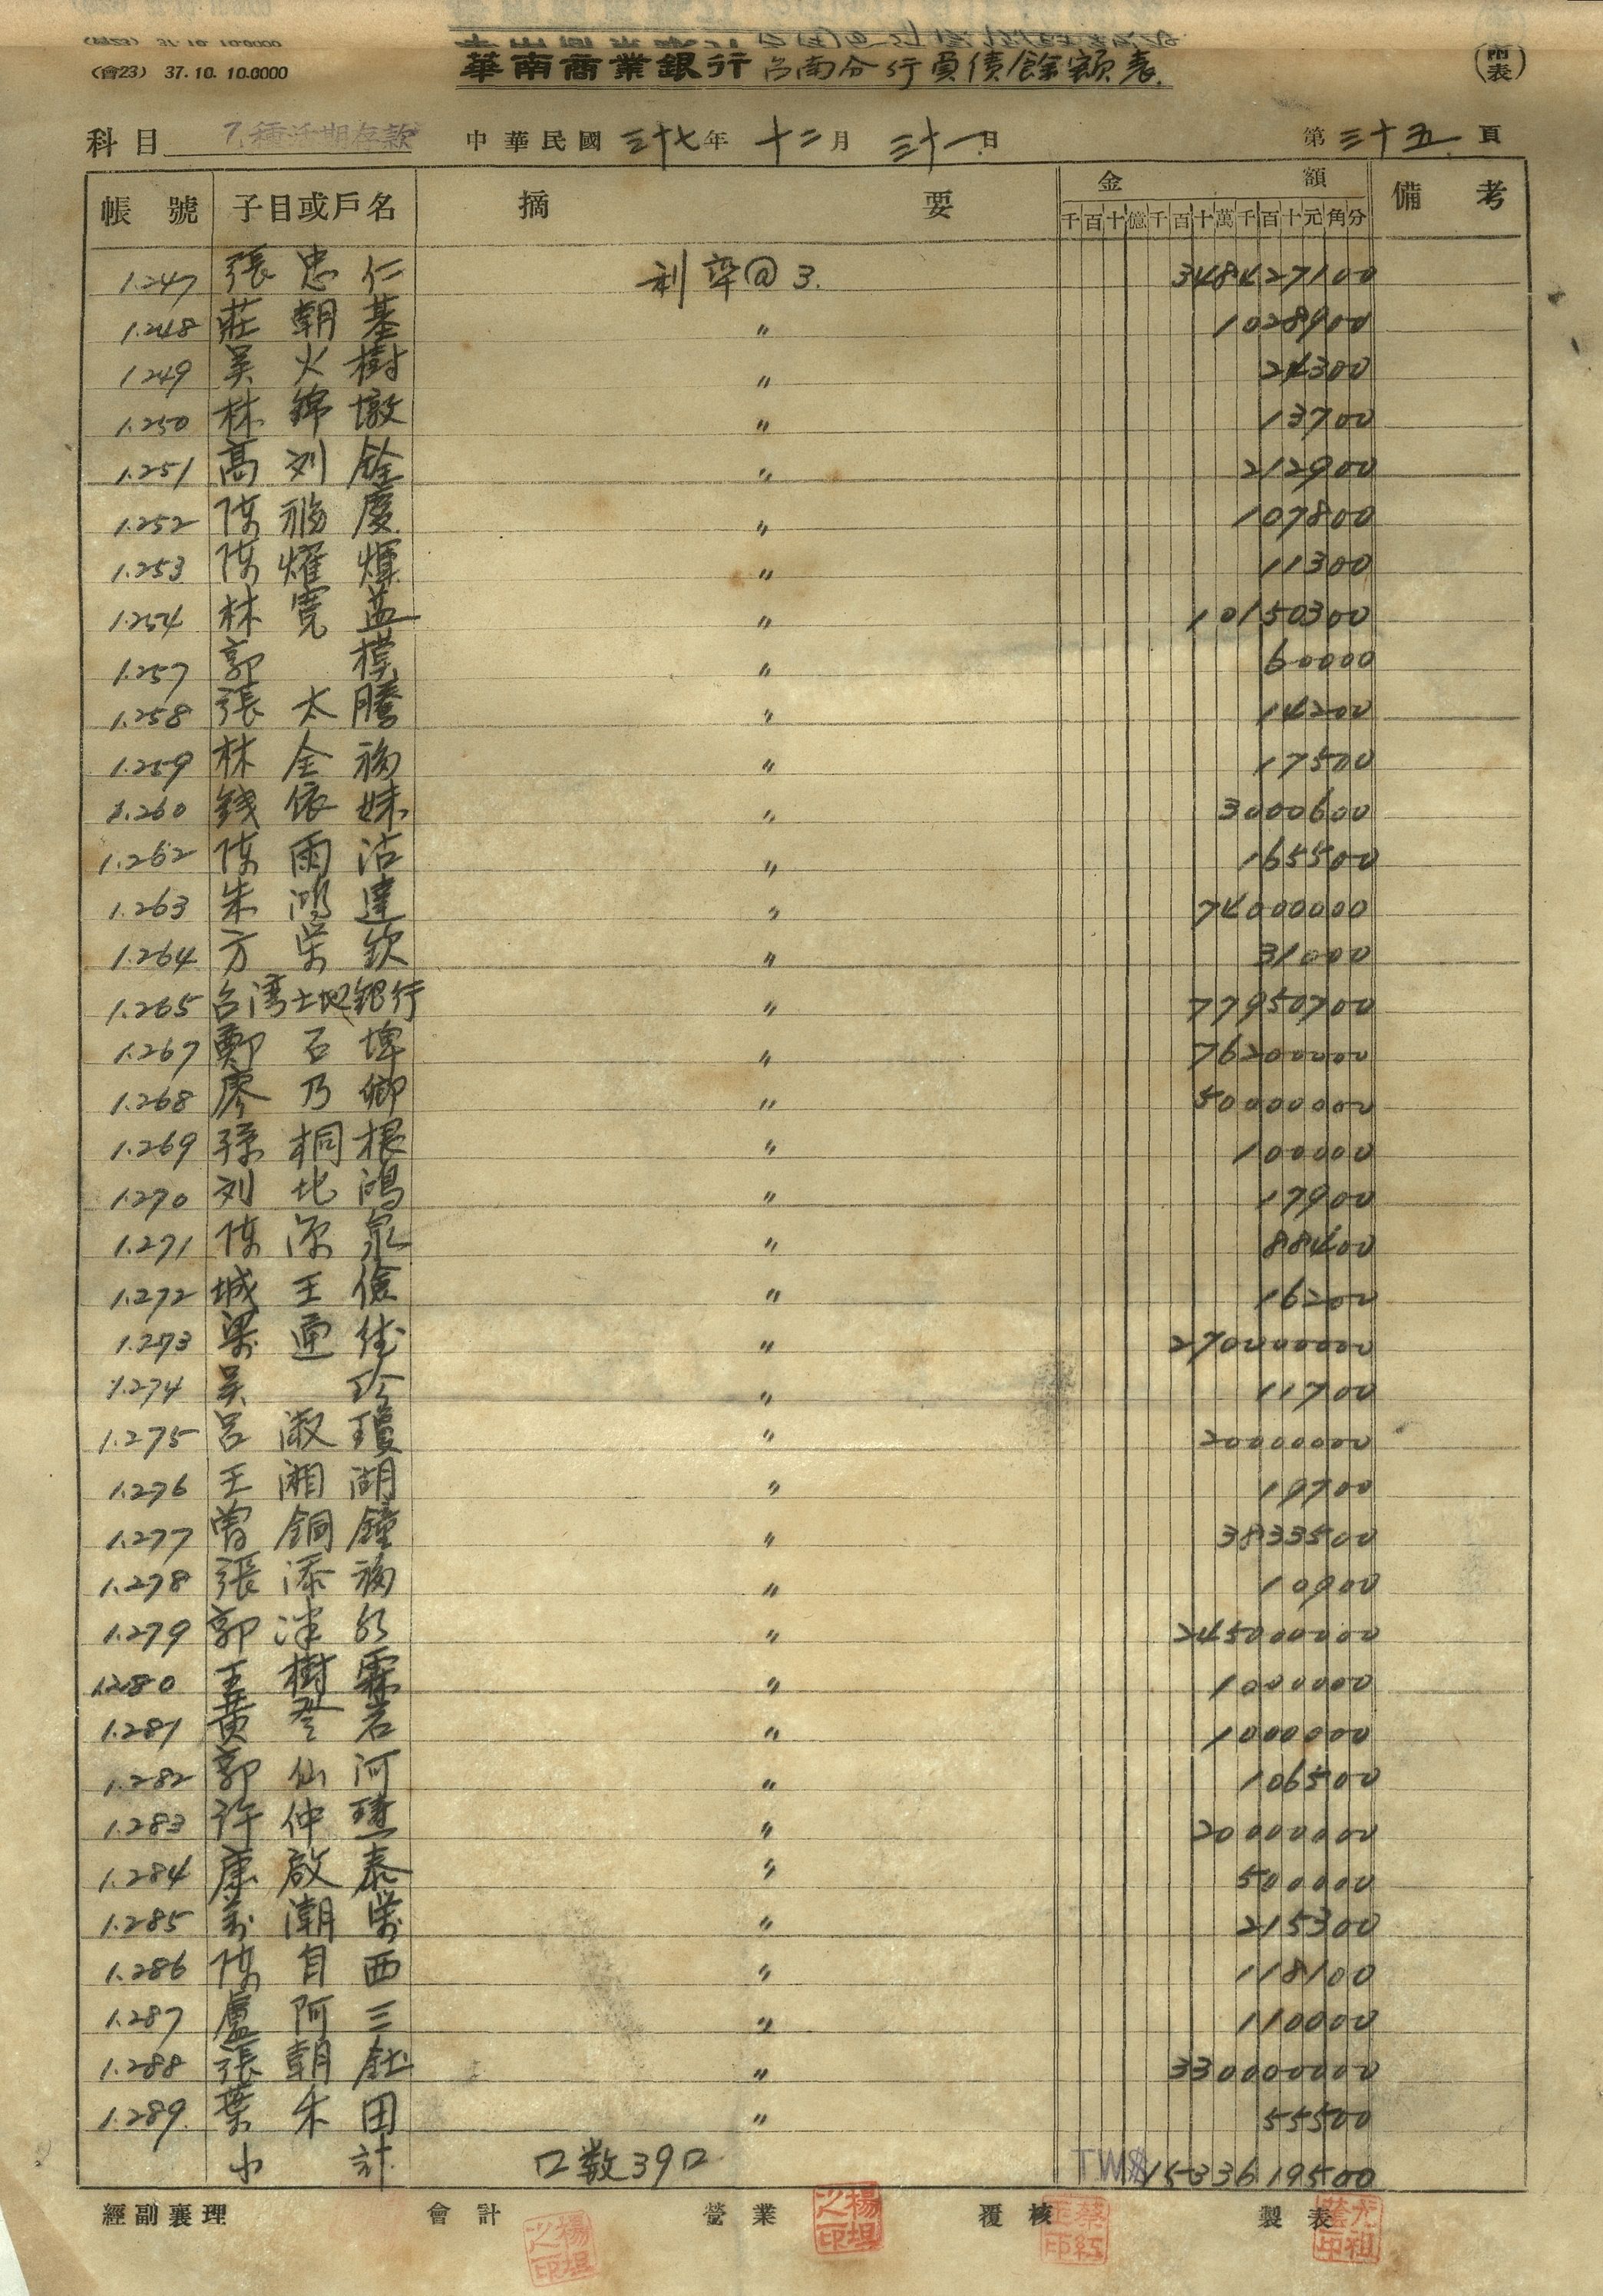 (會23) 37. 10. 10.0000
華南商業銀行台南分行負債餘額表
(附表)
科目 7.種活期存款 中華民國三十七年十二月三十一日 第三十五頁
帳號 子目或戶名 摘要 金額 備考
千百十億千百十萬千百十元角分
1.247 張忠仁 利率@3. 348427100
1.248 莊朝基 〃 1028900
1249 吳火樹 〃 24300
1.250 林錦墩 〃 13700
1.251 高刘銓 〃 212900
1.252 陳福慶 〃 107800
1.253 陳燿煇 〃 11300
1.254 林寬益 〃 10150300
1.257 郭模 〃 60000
1.258 張太騰 〃 14200
1.259 林全福 〃 17500
1.260 錢依妹 〃 3000600
1.262 陳雨沾 〃 165500
1.263 朱鴻達 〃 74000000
1.264 方荣欽 〃 31000
1.265 台湾土地銀行 〃 77950700
1.267 鄭石埤 〃 76200000
1.268 廖乃卿 〃 50000000
1.269 孫桐根 〃 100000
1.270 刘北鴻 〃 17900
1.271 陳源泉 〃 88400
1.272 城王儉 〃 16200
1.273 梁運佳 〃 270000000
1.274 吳珍 〃 11700
1.275 呂淑瓊 〃 20000000
1.276 王湘湖 〃 19700
1.277 曾銅鐘 〃 3833500
1.278 張添福 〃 10900
1.279 郭 〃 245000000
1.280 王樹霖 〃 1000000
1.281 黄登岩 〃 1000000
1.282 郭仙河 〃 106500
1.283 許仲 〃 20000000
1.284 康啟泰 〃 500000
1.285 潮荣 〃 215300
1.286 陳自西 〃 118100
1.287 盧阿三 〃 110000
1.288 張朝 〃 330000000
1.289. 葉禾田 〃 55500
小計 口数39口 TW$1533619500
經副襄理 會計 營業 覆核 製表